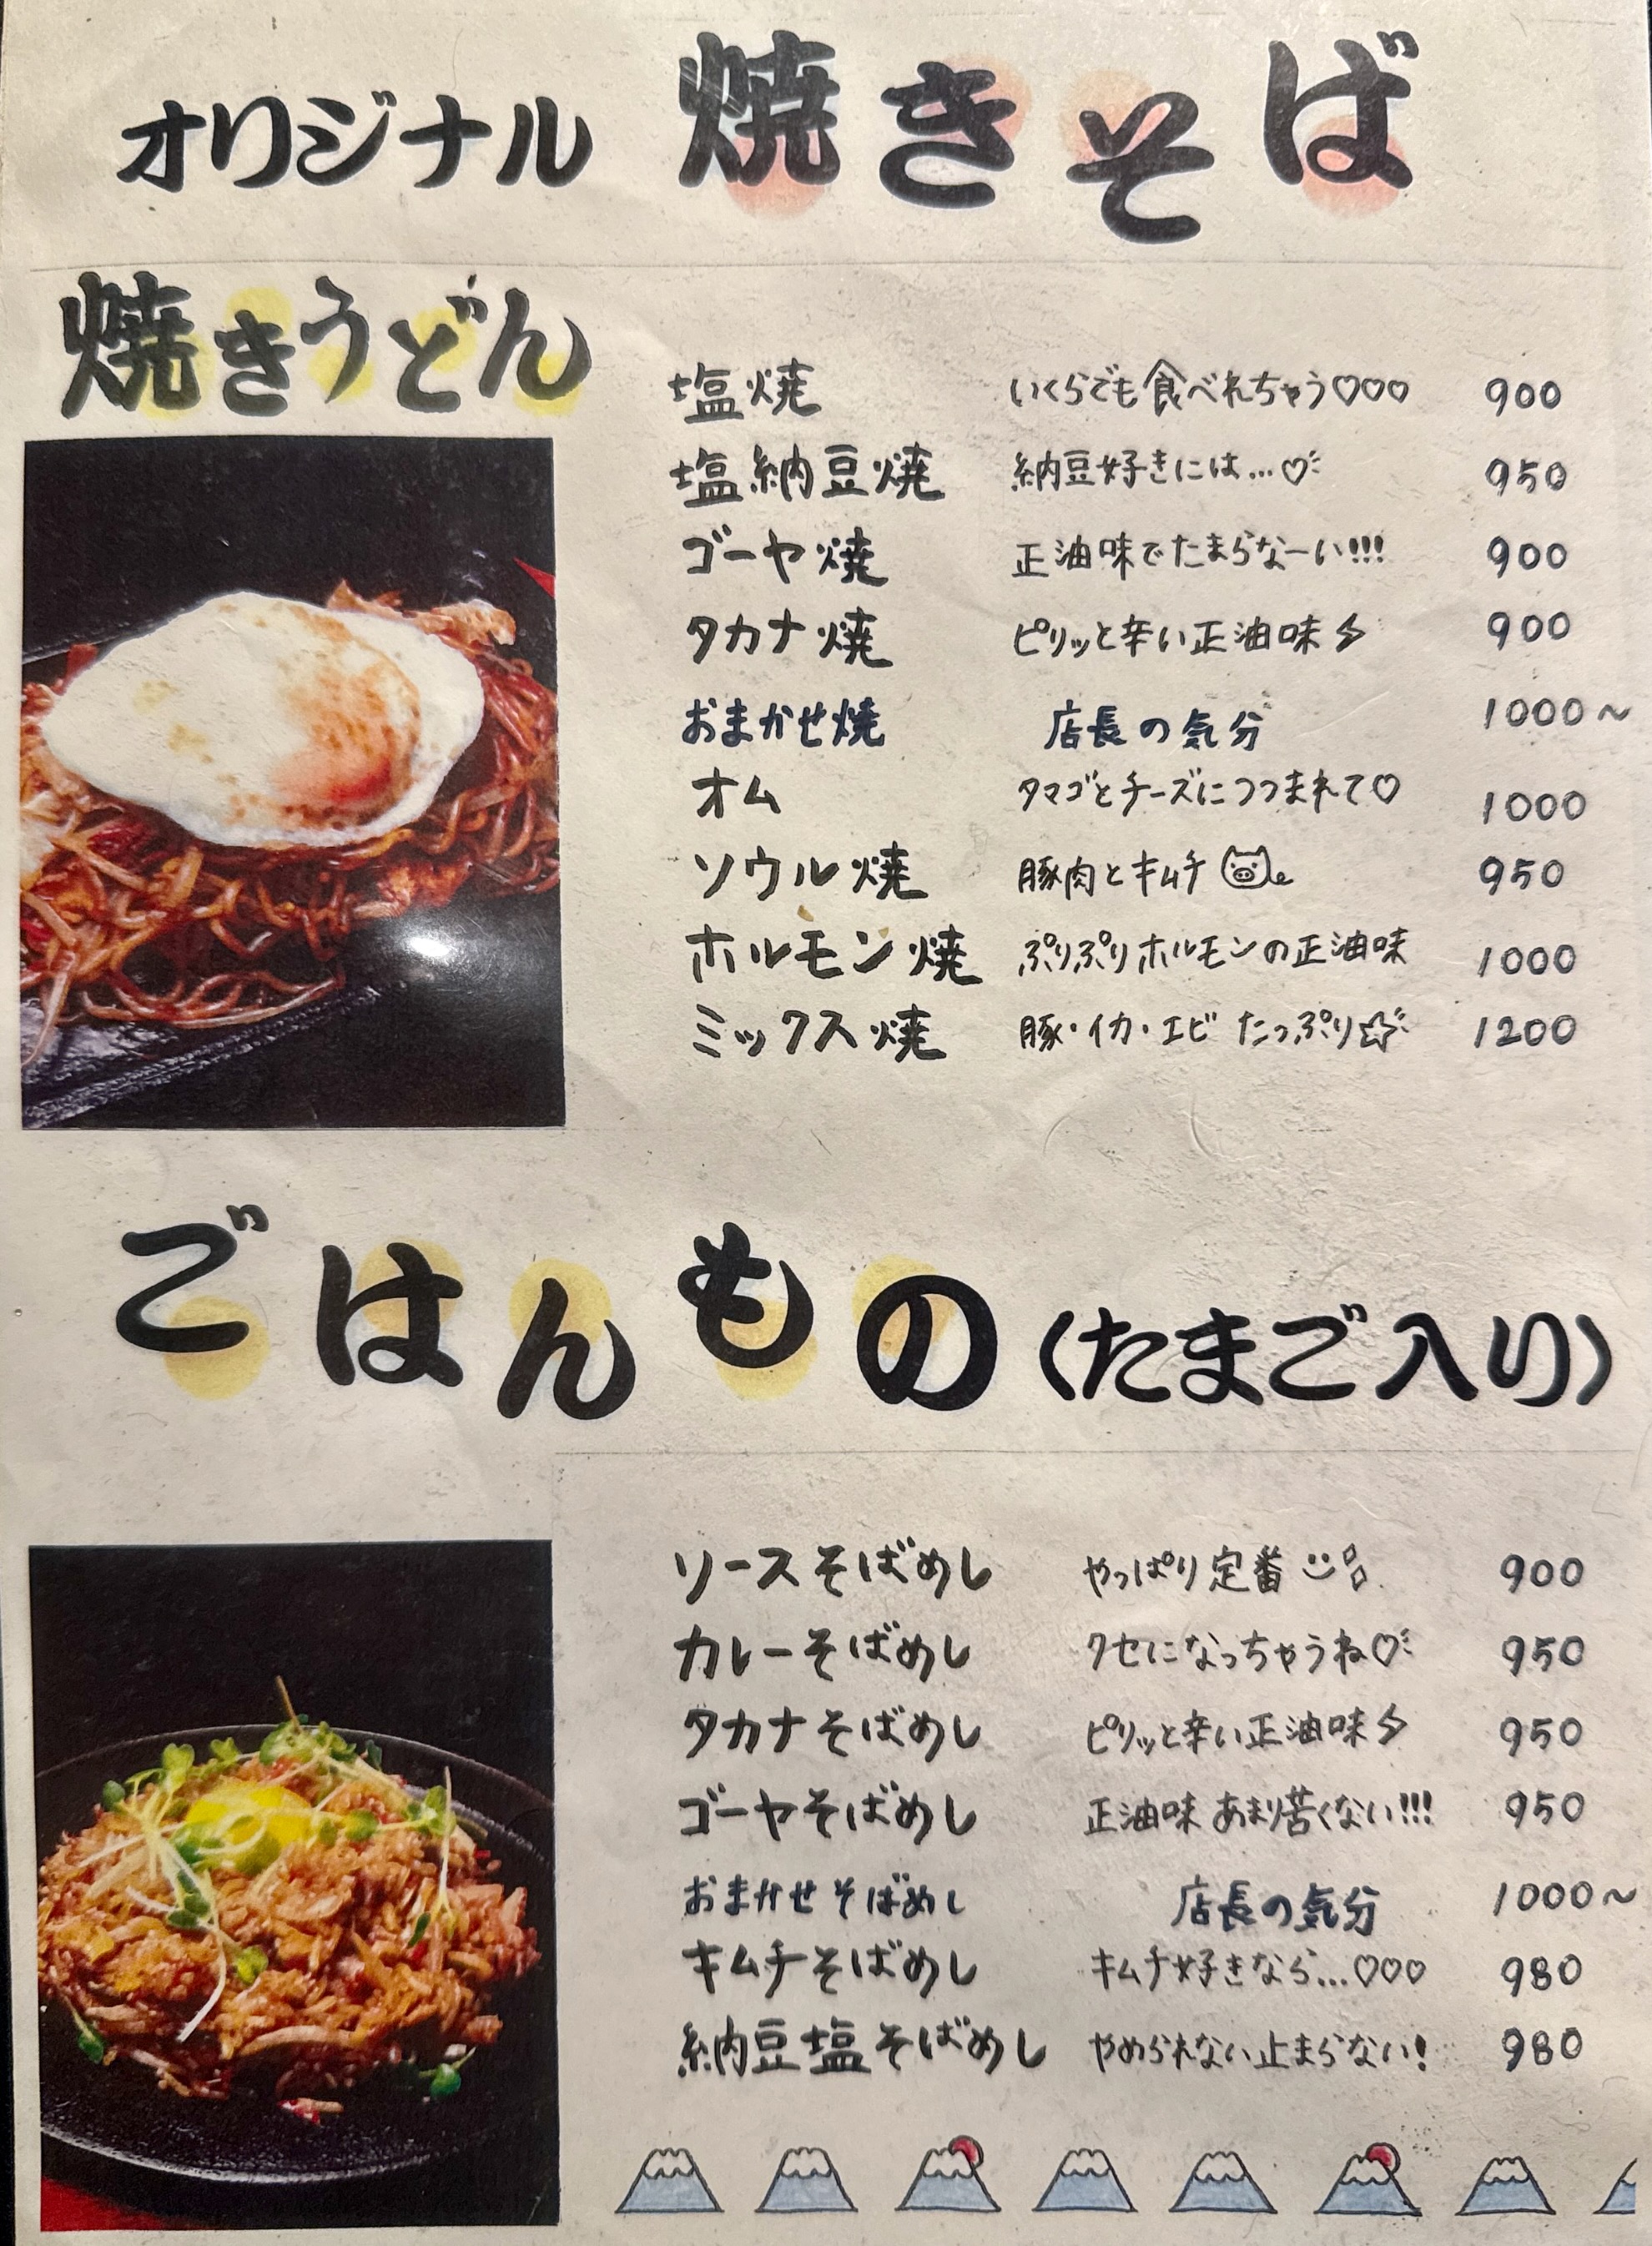 オリジナル 焼きそば
焼きうどん
塩焼 いくらでも食べれちゃう♡♡♡ 900
塩納豆焼 納豆好きには…♡ 950
ゴーヤ焼 正油味でたまらなーい!!! 900
タカナ焼 ピリッと辛い正油味 900
おまかせ焼 店長の気分 1000～
オム タマゴとチーズにつつまれて♡ 1000
ソウル焼 豚肉とキムチ 950
ホルモン焼 ぷりぷりホルモンの正油味 1000
ミックス焼 豚・イカ・エビ たっぷり☆ 1200
ごはんもの(たまご入り)
ソースそばめし やっぱり定番 900
カレーそばめし クセになっちゃうね♡ 950
タカナそばめし ピリッと辛い正油味 950
ゴーヤそばめし 正油味 あまり苦くない!!! 950
おまかせそばめし 店長の気分 1000～
キムチそばめし キムチ好きなら…♡♡♡ 980
納豆塩そばめし やめられない止まらない! 980